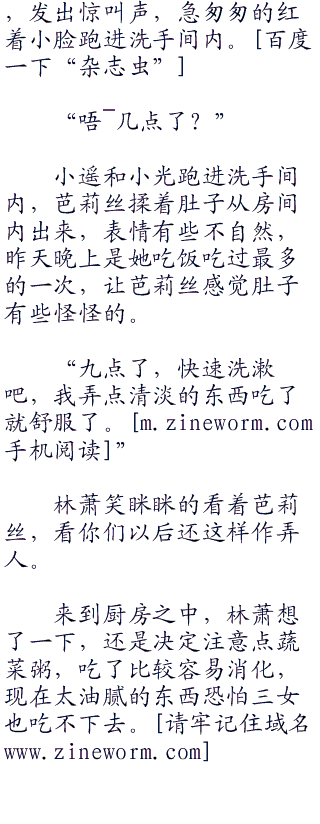 ，发出惊叫声，急匆匆的红
着小脸跑进洗手间内。[百度
一下“杂志虫”]
“唔¯几点了？”
小遥和小光跑进洗手间
内，芭莉丝揉着肚子从房间
内出来，表情有些不自然，
昨天晚上是她吃饭吃过最多
的一次，让芭莉丝感觉肚子
有些怪怪的。
“九点了，快速洗漱
吧，我弄点清淡的东西吃了
就舒服了。[m.zineworm.com
手机阅读]”
林萧笑眯眯的看着芭莉
丝，看你们以后还这样作弄
人。
来到厨房之中，林萧想
了一下，还是决定注意点蔬
菜粥，吃了比较容易消化，
现在太油腻的东西恐怕三女
也吃不下去。[请牢记住域名
www.zineworm.com]